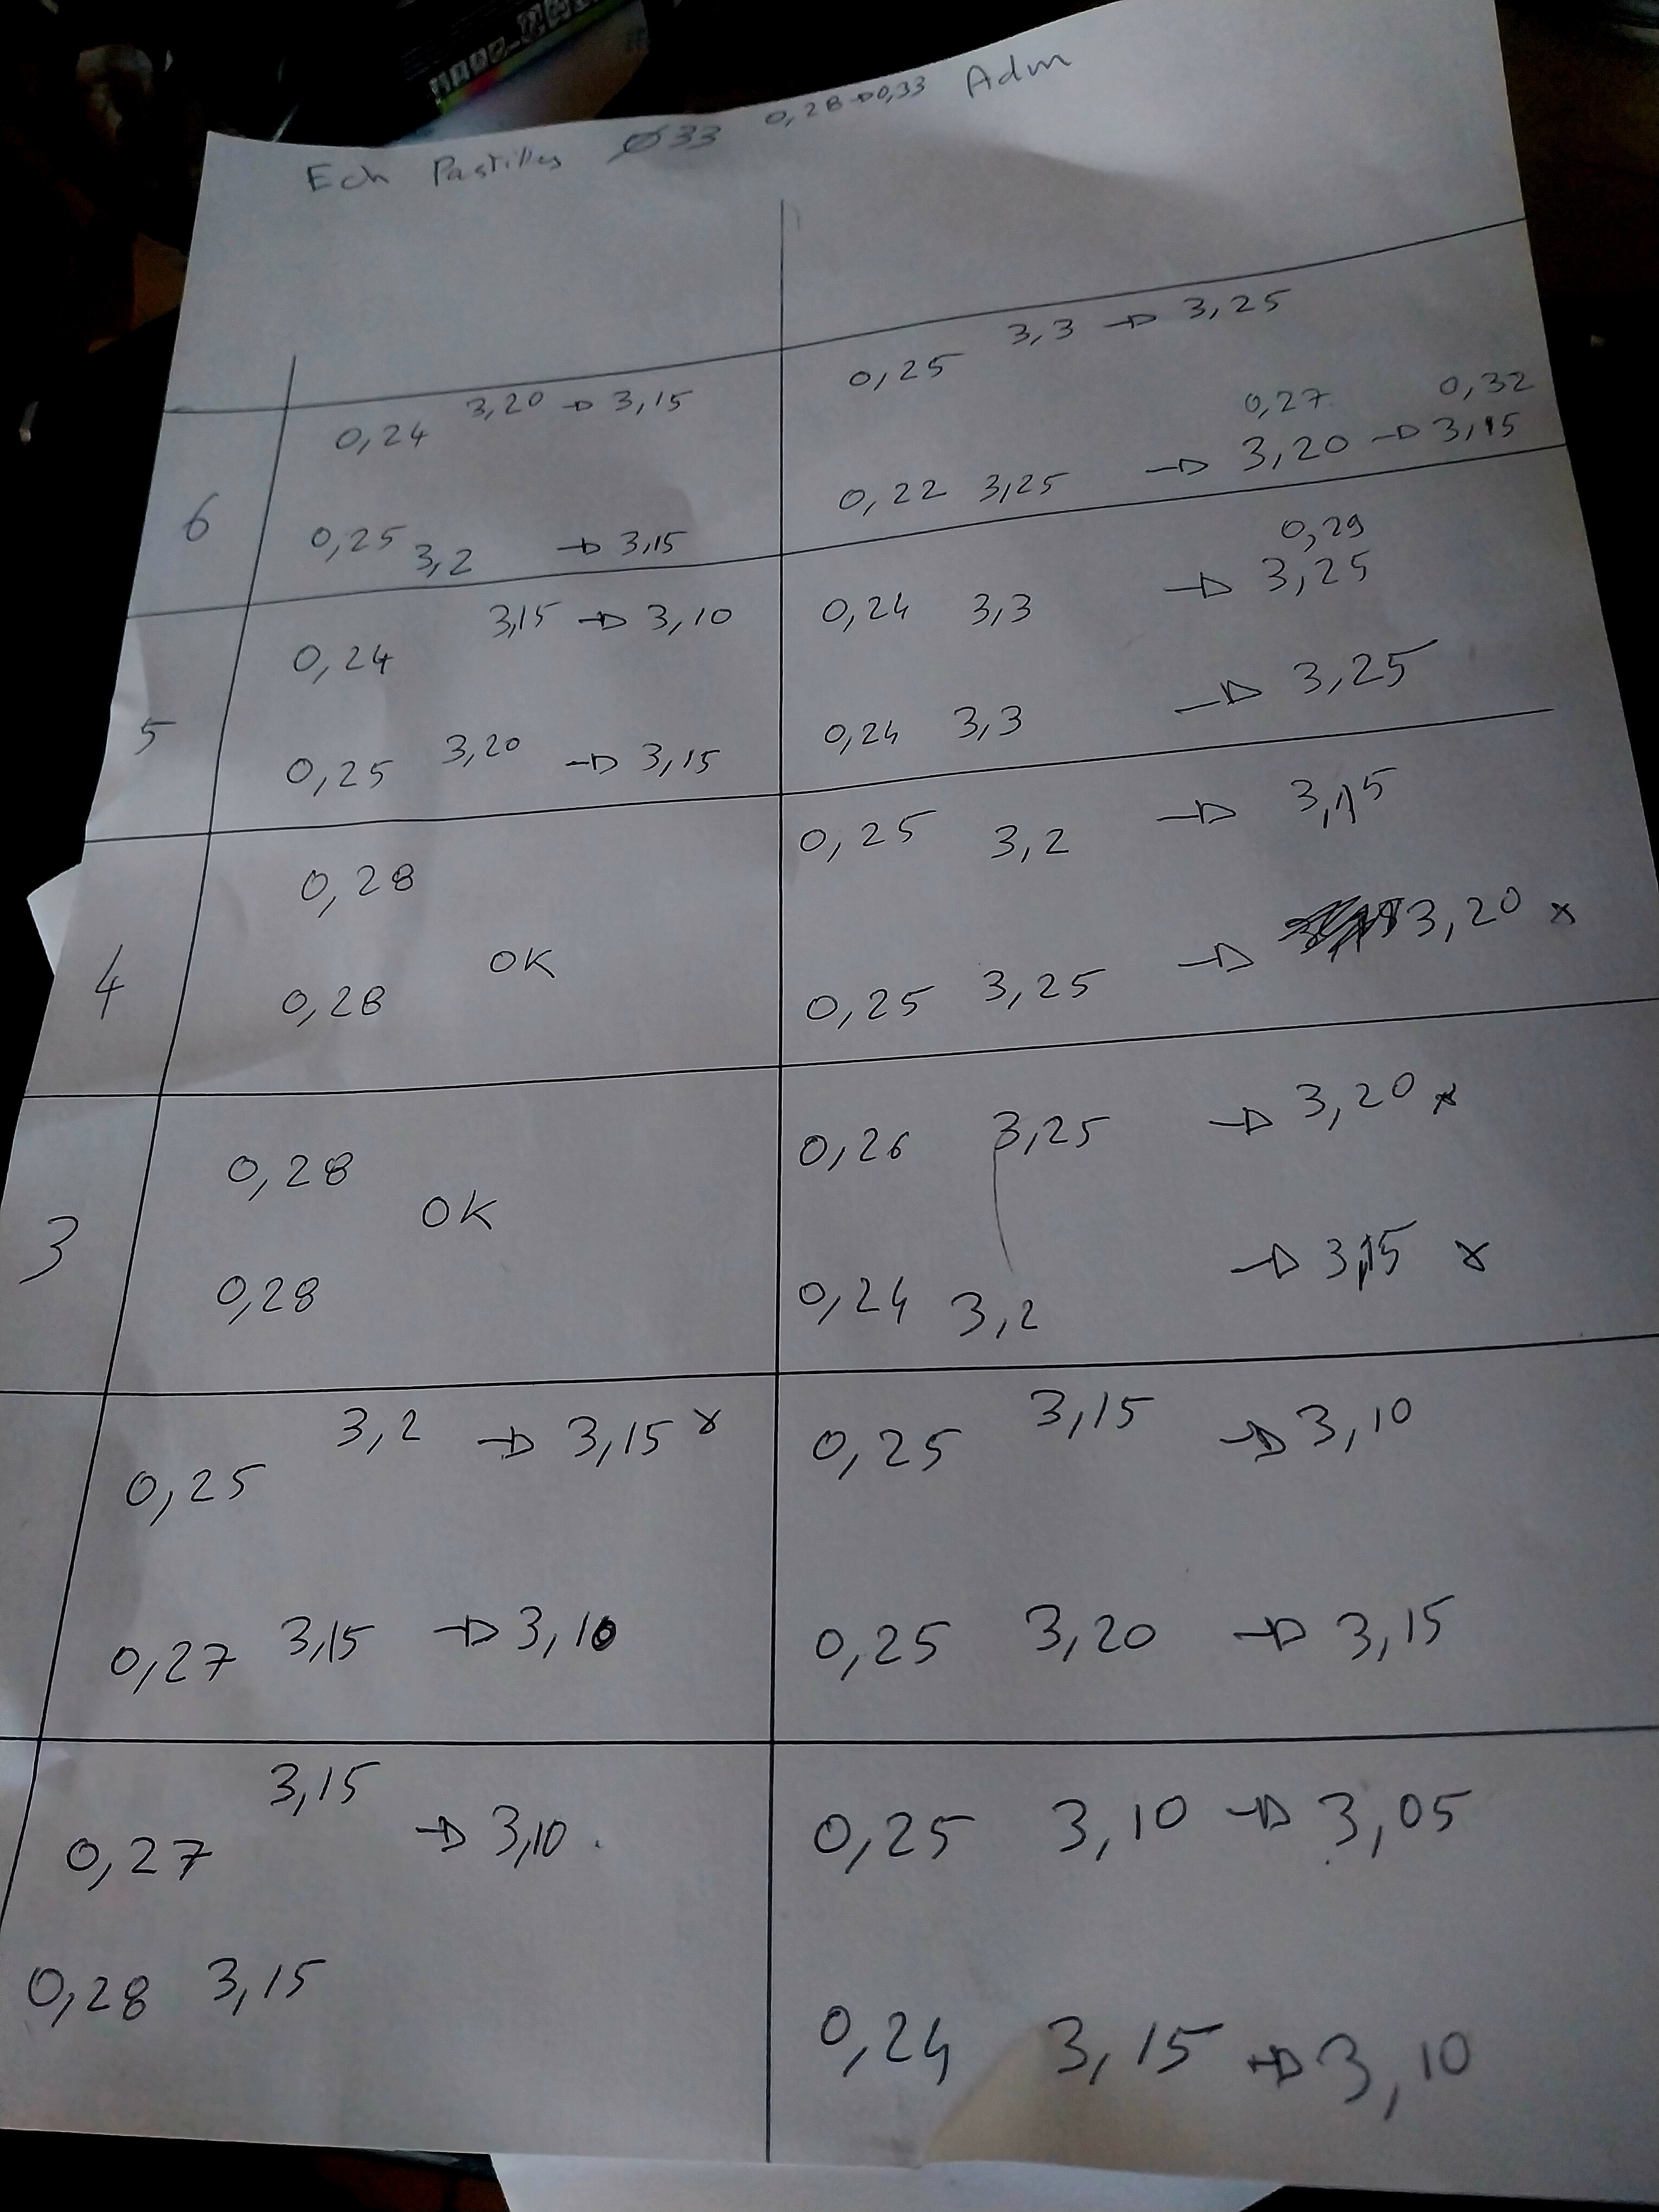 Ech Pastilles Ø33 0,28→0,33 Adm
0,24 3,20 → 3,15
0,25 3,3 → 3,25
6
0,25 3,2 → 3,15
0,27 0,32
0,22 3,25 → 3,20 → 3,15
0,24 3,15 → 3,10
0,29
0,24 3,3 → 3,25
5
0,25 3,20 → 3,15
0,24 3,3 → 3,25
0,28
0,25 3,2 → 3,15
4
OK
0,28
0,25 3,25 → 3,20 x
0,28
0,26 3,25 → 3,20 x
3
OK
0,28
0,24 3,2 → 3,15 x
0,25 3,2 → 3,15 x
0,25 3,15 → 3,10
0,27 3,15 → 3,10
0,25 3,20 → 3,15
0,27 3,15 → 3,10
0,25 3,10 → 3,05
0,28 3,15
0,24 3,15 → 3,10